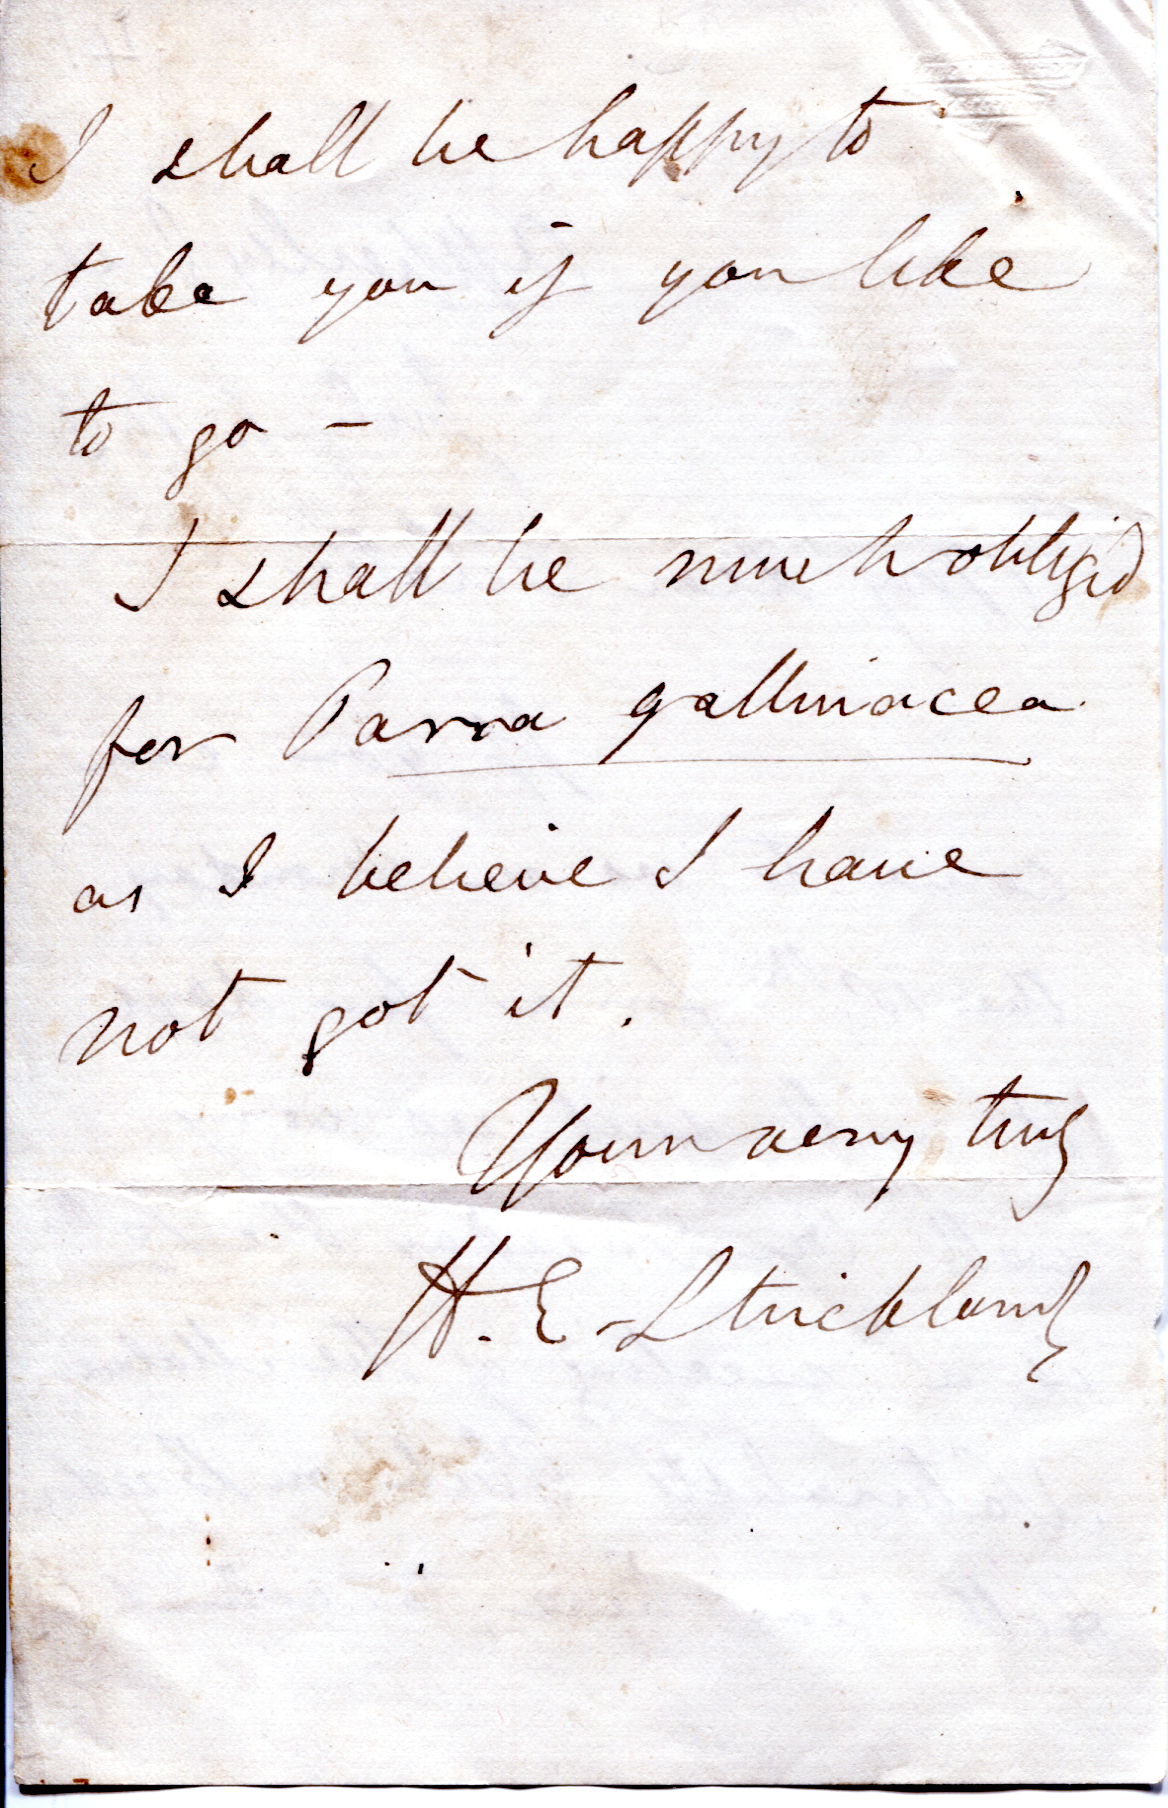 I shall be happy to
take you if you like
to go –
I shall be much oblig'd
for Parra gallinacea
as I believe I have
not got it.
Yours very truly
H. E. Strickland